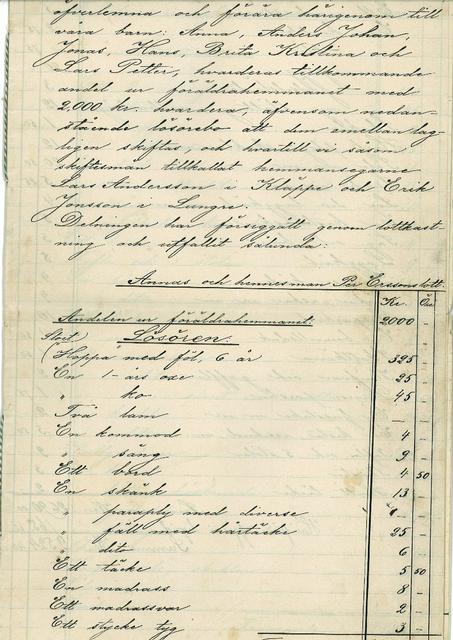 öfverlemna och förära härigenom till
våra barn: Anna, Anders, Johan,
Jonas, Hans, Brita Kristina och
Lars Petter, hvarderas tillkommande
andel ur föräldrahemmanet med
2,000 kr. hvardera, äfvensom nedan-
stående lösörebo att dem emellan lag-
ligen skiftas, och hvartill vi såsom
skiftesmän tillkallat hemmansegarne
Lars Andersson i Kläppe och Erik
Jonsson i Lungre.
Delningen har försiggått genom lottkast-
ning och utfallit sålunda:
Annas och hennes man Per Ersons lott.
Kr. Öre
Andelen ur föräldrahemmanet: 2000 –
Lösören.
Sto( Hoppa med föl, 6 år 325 –
En 1-års oxe 25 –
" ko 45 –
Två lam – –
En kommod 4 –
" säng 9 –
Ett bord 4 50
En skänk 13 –
" paraply med diverse –
" fäll med hårtäcke 25 –
" dito 6 –
Ett täcke 5 50
En madrass 8 –
Ett madrassvar 2 –
Ett stycke tyg 3 –